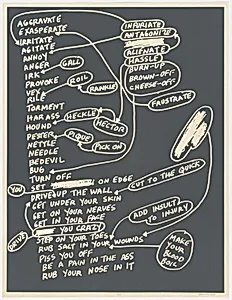 AGGRAVATE
EXASPERATE
IRRITATE
AGITATE
ANNOY
ANGER
IRK
PROVOKE
VEX
RILE
TORMENT
HARASS
HOUND
PESTER
NETTLE
NEEDLE
BEDEVIL
BUG
TURN OFF
GALL
ROIL
RANKLE
HECKLE
HECTOR
PIQUE
PICK ON
INFURIATE
ANTAGONIZE
ALIENATE
HASSLE
BURN-UP
BROWN-OFF
CHEESE-OFF
FRUSTRATE
YOU
SET ON EDGE
DRIVE UP THE WALL
GET UNDER YOUR SKIN
GET ON YOUR NERVES
GET IN YOUR FACE
YOU CRAZY
DRIVE
STEP ON YOUR TOES
RUB SALT IN YOUR WOUNDS
PISS YOU OFF
BE A PAIN IN THE ASS
RUB YOUR NOSE IN IT
CUT TO THE QUICK
ADD INSULT
TO INJURY
MAKE
YOUR
BLOOD
BOIL